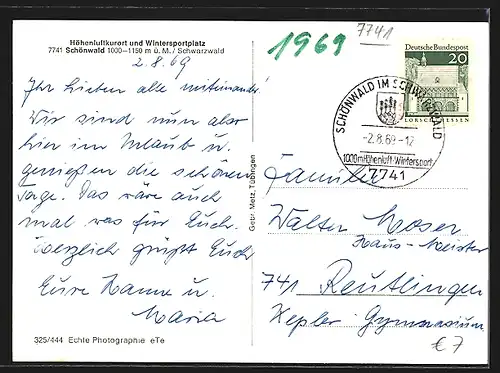 1969
7741
Höhenluftkurort und Wintersportplatz
7741 Schönwald 1000–1150 m ü. M. / Schwarzwald
2.8.69
Ihr Lieben alle miteinander!
Wir sind nun also
hier im Urlaub u.
genießen die schönen
Tage. Das wäre auch
mal was für Euch.
Herzlich grüßt Euch
Eure Hanne u.
Maria
325/444 Echte Photographie eTe
Gebr. Metz, Tübingen
Deutsche Bundespost
20
LORSCH HESSEN
SCHÖNWALD IM SCHWARZWALD
-2.8.69-12
1000m Höhenluft-Wintersport
7741
Familie
Walter Moser
Haus-Meister
741 Reutlingen
Kepler Gymnasium
€ 7